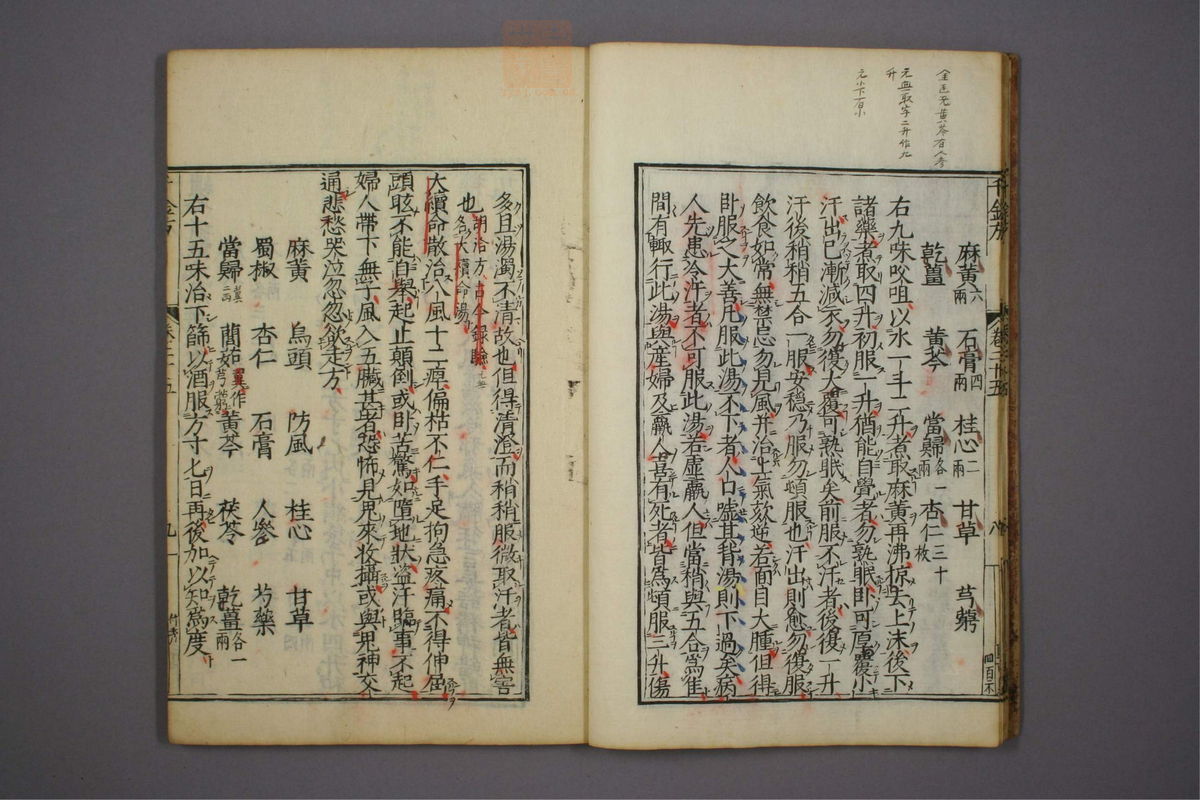 麻黃六兩 石膏四兩 桂心二兩 甘草 芎藭
乾薑 黃芩 當歸各一兩 杏仁三十枚
右九味㕮咀以水一斗二升煮取麻黃再沸掠去上沫後下
諸藥煮取四升初服一升猶能自覺者勿熟眠即可厚覆小
汗出已漸漸減衣勿復大覆可熟眠矣前服不汗者後復一升
汗後稍稍五合一服安穩乃服勿頓服也汗出則愈勿復服
飲食如常無禁忌勿見風并治上氣欬逆若面目大腫但得
臥服之大善凡服此湯不下者人口噓其背湯則下過矣病
人先患冷汗者不可服此湯若虛羸人但當稍與五合爲佳
間有輒行此湯與產婦及羸人甚有死者皆爲頓服三升傷
多且湯濁不清故也但得清澄而稍稍服微取汗者皆無害
也胡洽方古今錄驗名大續命湯
大續命散治八風十二痹偏枯不仁手足拘急疼痛不得伸屈
頭眩不能自舉起止顛倒或臥苦驚如墮地狀盜汗臨事不起
婦人帶下無子風入五臟甚者恐怖見鬼來收攝或與鬼神交
通悲愁哭泣忽忽欲走方
麻黃 烏頭 防風 桂心 甘草
蜀椒 杏仁 石膏 人參 芍藥
當歸翼二兩 䕡茹翼作芎藭 黃芩 茯苓 乾薑各一兩
右十五味治下篩以酒服方寸匕日再後加以知爲度
卷二十五
九